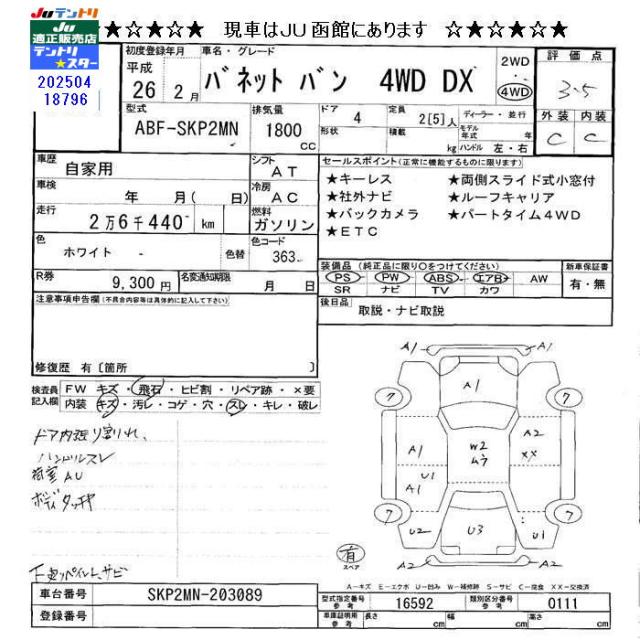 Juテントリ
Ju
適正販売店
テントリ
★スター
202504
18796
★☆★☆★☆★ 現車はJU函館にあります ☆★☆★☆★
初度登録年月
平成
26 2月
車名・グレード
バネット バン 4WD DX
2WD
・
4WD
評価点
3.5
外装 内装
C C
型式
ABF-SKP2MN
排気量
1800
CC
ドア
4
形状
定員
2[5]人
積載
kg
ディーラー・並行
モデル年式 年
ハンドル 左・右
車歴
自家用
シフト
AT
車検
年 月( 日)
冷房
AC
走行
2万6千440 km
燃料
ガソリン
色
ホワイト -
色替
色コード
363
R券
9,300円
名変通知期限
月 日
セールスポイント(正常に機能するものに限ります)
★キーレス ★両側スライド式小窓付
★社外ナビ ★ルーフキャリア
★バックカメラ ★パートタイム4WD
★ETC
装備品(純正品に限り○をつけてください)
PS PW ABS エアB AW
SR ナビ TV カワ
新車保証書
有・無
後日品
取説・ナビ取説
注意事項申告欄(不具合内容等は具体的に記入して下さい)
修復歴 有[箇所 ]
検査員記入欄
FW キズ・飛石・ヒビ割・リペア跡・×要
内装 キズ・汚レ・コゲ・穴・スレ・キレ・破レ
ドア内張り割れ、
ハンドルスレ
荷室AU
ボディタッチヤ
A1 A1
A1
7 7
A1 W2 A2
ムラ XX
U1
A1
7 7
U2 U3 U1
A2 A2
有
スペア
A-キズ E-エクボ U-凹み W-補修跡 S-サビ C-腐食 XX-交換済
車台番号
SKP2MN-203089
登録番号
型式指定番号
参考
16592
類別区分番号
参考
0111
車庫証明用
参考
長さ cm 幅 cm 高さ cm